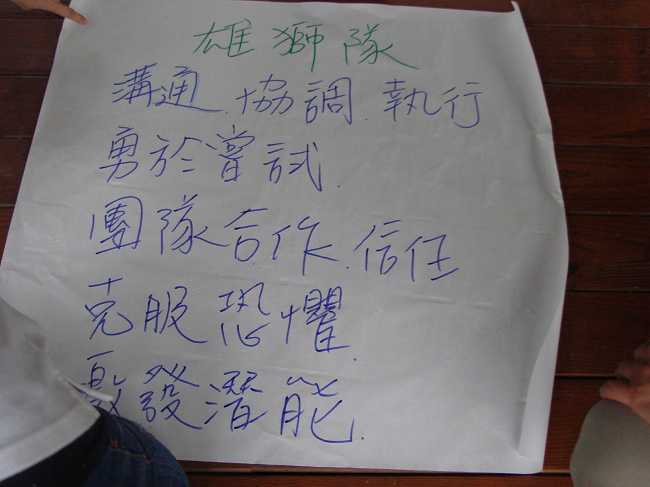 雄獅隊
溝通.協調.執行
勇於嘗試.
團隊合作.信任
克服恐懼.
啟發潛能.